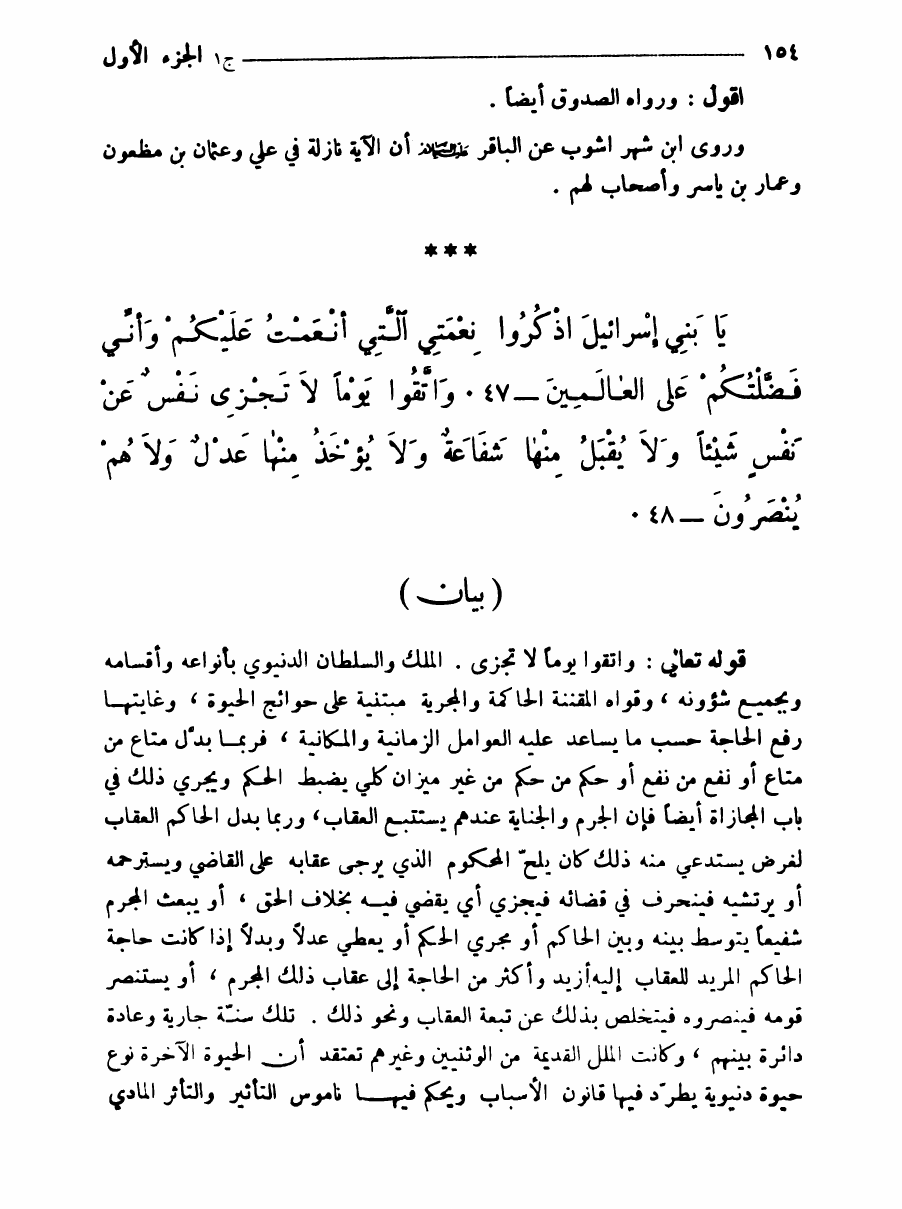 ١٥٤ ج١ الجزء الأول
اقول : ورواه الصدوق أيضاً .
وروى ابن شهر اشوب عن الباقر عليه السلام أن الآية نازلة في علي وعثمان بن مظعون
وعمار بن ياسر وأصحاب لهم .
***
يَا بَنِي إِسْرائيلَ اذْكُرُوا نِعْمَتِي ٱلَّتِي أَنْعَمْتُ عَلَيْكُمْ وَأَنِّي
فَضَّلْتُكُمْ عَلَى العٰالَمِينَ ــ ٤٧ . وَٱتَّقُوا يَوْماً لاَ تَجْزِى نَفْسٌ عَنْ
نَفْسٍ شَيْئاً وَلاَ يُقْبَلُ مِنْهٰا شَفَاعَةٌ وَلاَ يُؤْخَذُ مِنْهٰا عَدْلٌ وَلاَ هُمْ
يُنْصَرُونَ ــ ٤٨ .
( بيان )
قوله تعالى : واتقوا يوماً لا تجزى . الملك والسلطان الدنيوي بأنواعه وأقسامه
وبجميع شؤونه ، وقواه المقننة الحاكمة والمجرية مبتنية على حوائج الحيوة ، وغايتها
رفع الحاجة حسب ما يساعد عليه العوامل الزمانية والمكانية ، فربما بدّل متاع من
متاع أو نفع من نفع أو حكم من حكم من غير ميزان كلي يضبط الحكم ويجري ذلك في
باب المجازاة أيضاً فإن الجرم والجناية عندهم يستتبع العقاب، وربما بدل الحاكم العقاب
لغرض يستدعي منه ذلك كان يلحّ المحكوم الذي يرجى عقابه على القاضي ويسترحمه
أو يرتشيه فينحرف في قضائه فيجزي أي يقضي فيه بخلاف الحق ، أو يبعث المجرم
شفيعاً يتوسط بينه وبين الحاكم أو مجري الحكم أو يعطي عدلاً وبدلاً إذا كانت حاجة
الحاكم المريد للعقاب إليه أزيد وأكثر من الحاجة إلى عقاب ذلك المجرم ، أو يستنصر
قومه فينصروه فيتخلص بذلك عن تبعة العقاب ونحو ذلك . تلك سنّة جارية وعادة
دائرة بينهم ، وكانت الملل القديمة من الوثنيين وغيرهم تعتقد أن الحيوة الآخرة نوع
حيوة دنيوية يطرّد فيها قانون الأسباب ويحكم فيها ناموس التأثير والتأثر المادي